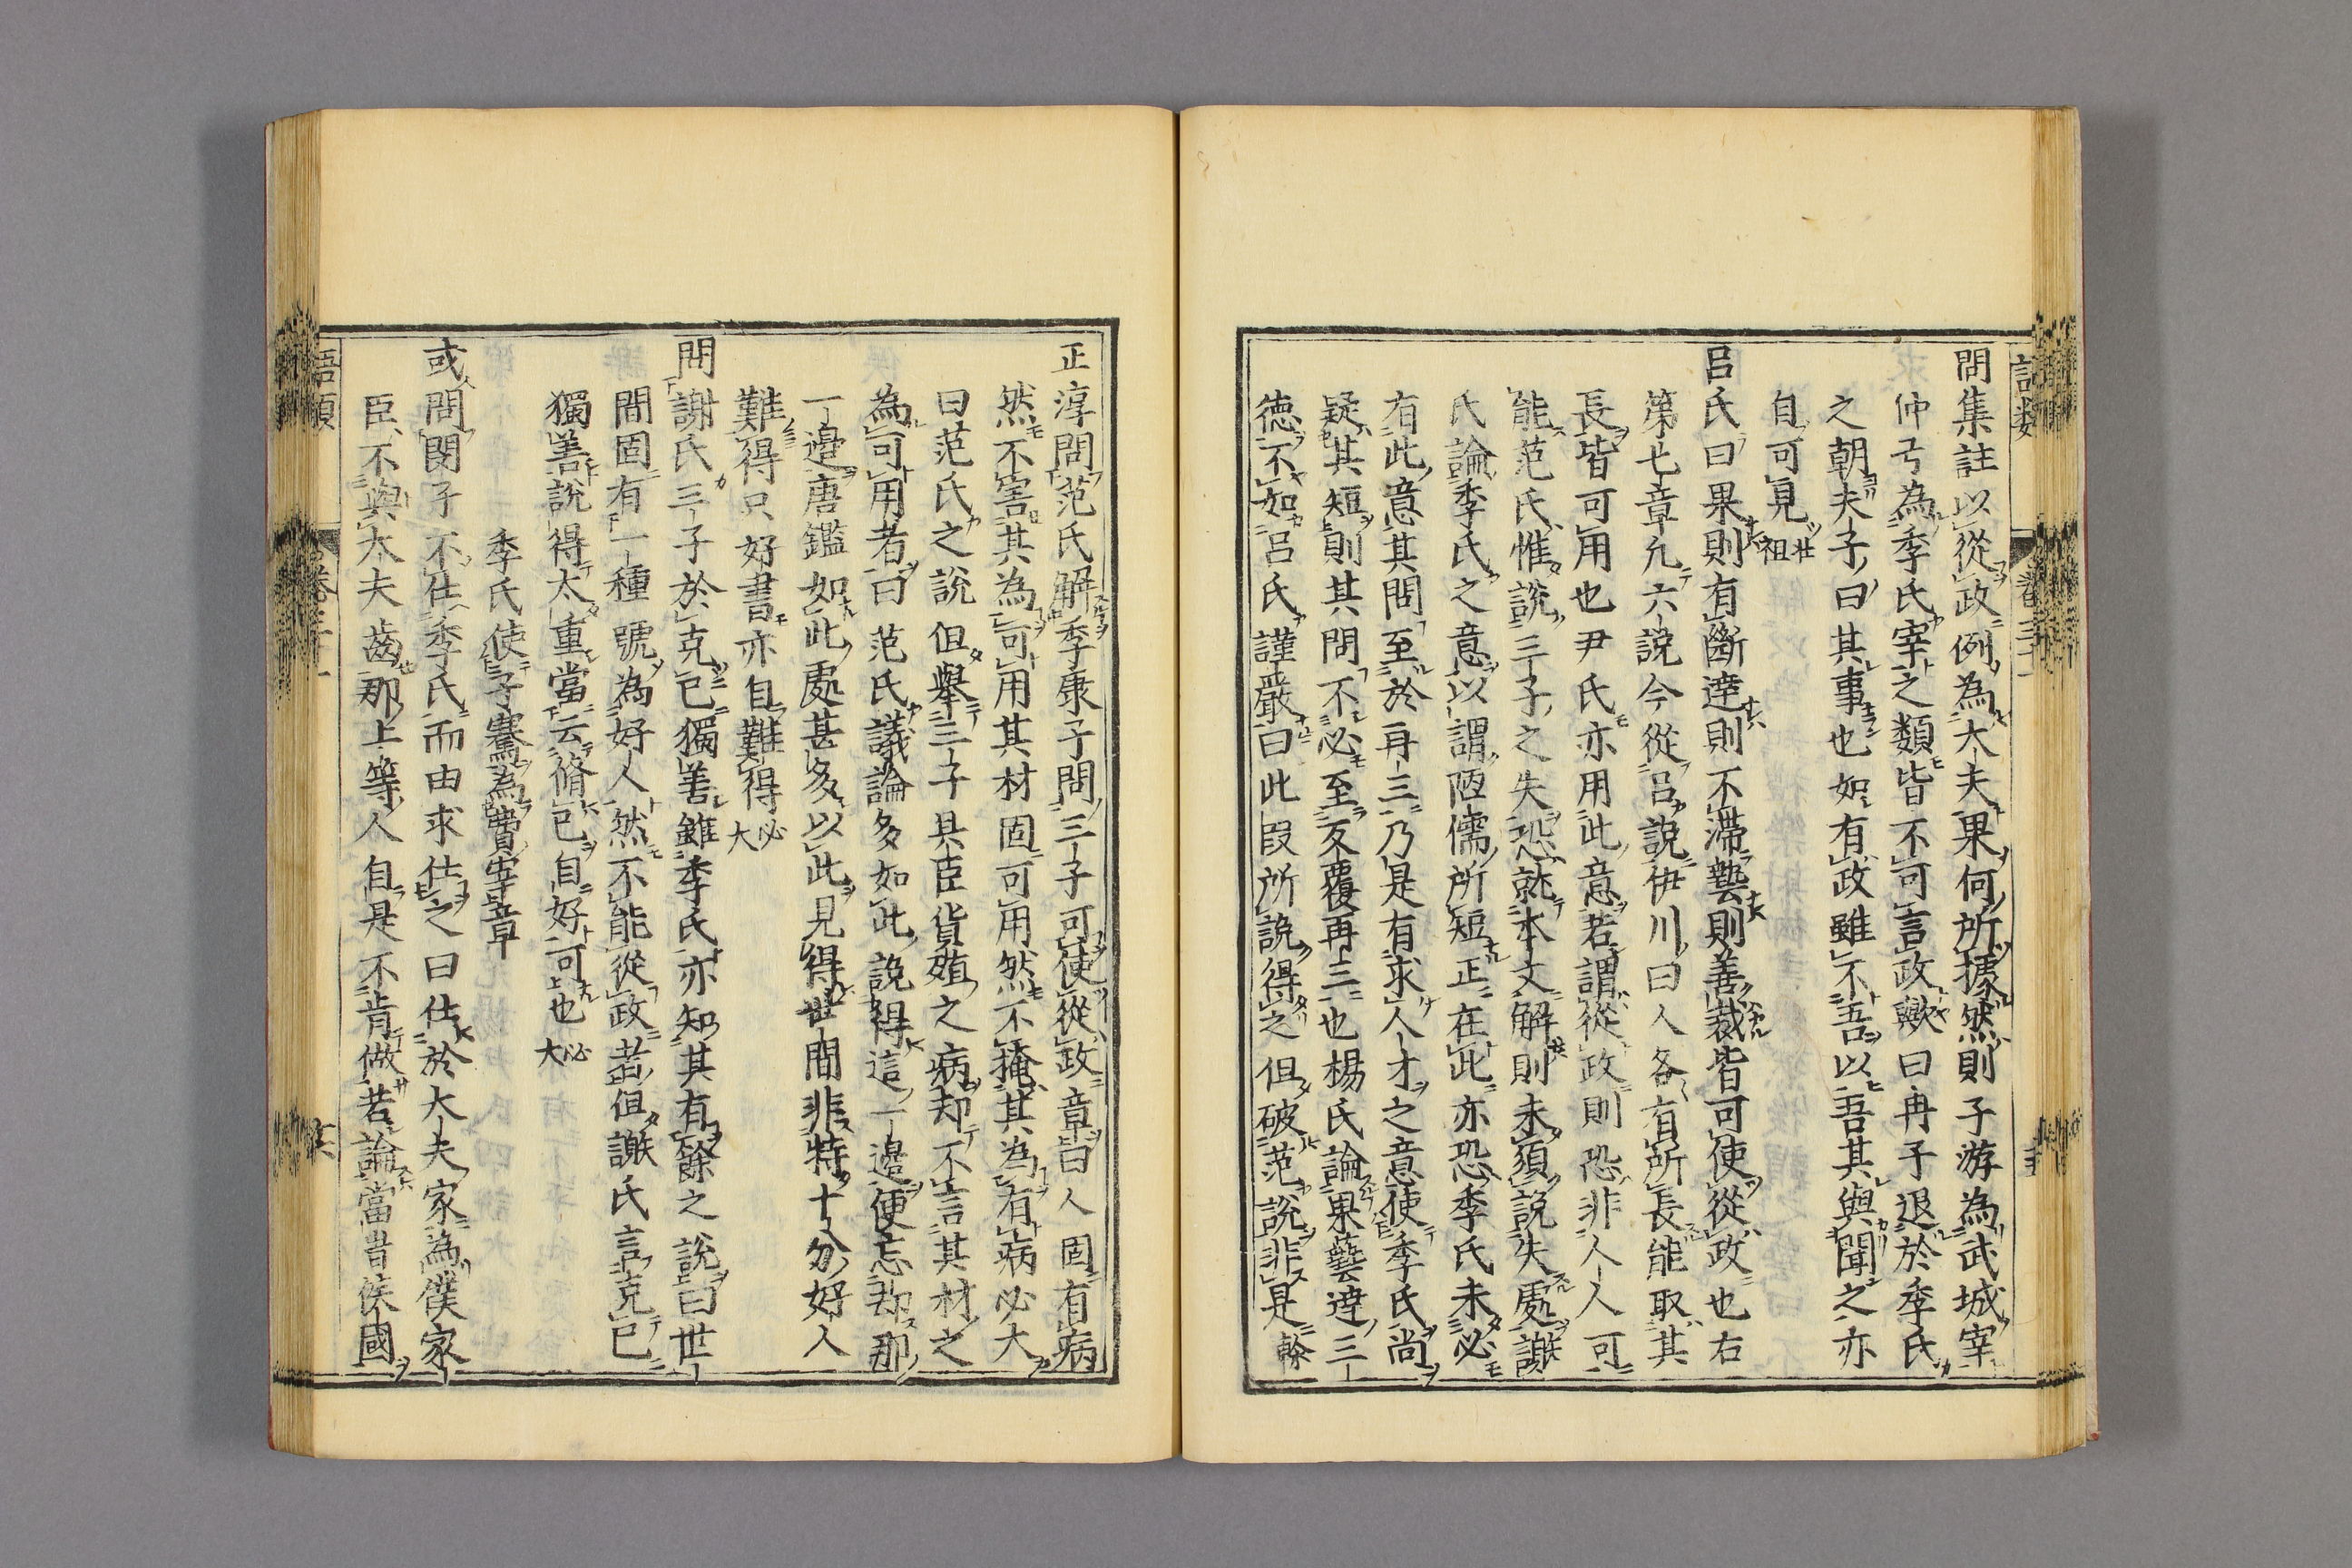 問集註以從政例為大夫果何所據然則子游為武城宰
仲弓為季氏宰之類皆不可言政歟曰冉子退於季氏
之朝夫子曰其事也如有政雖不吾以吾其與聞之亦
自可見 壯祖
呂氏曰果則有斷達則不滯藝則善裁皆可使從政也右
第七章凡六說今從呂說伊川曰人各有所長能取其
長皆可用也尹氏亦用此意若謂從政則恐非人人可
能范氏惟說三子之失恐就本文解則未須說失處謝
氏論季氏之意以謂陋儒所短正在此亦恐季氏未必
有此意其問至於再三乃是有求人才之意使季氏尚
疑其短則其問不必至反覆再三也楊氏論果藝達三
德不如呂氏謹嚴曰此段所說得之但破范說非是 榦
正淳問范氏解季康子問三子可使從政章曰人固有病
然不害其為可用其材固可用然不掩其為有病必大
曰范氏之說但舉三子具臣貨殖之病却不言其材之
為可用者曰范氏議論多如此說得這一邊便忘却那
一邊唐鑑如此處甚多以此見得世間非特十分好人
難得只好書亦自難得 必大
問謝氏三子於克己獨善雖季氏亦知其有餘之說曰世
間固有一種號為好人然不能從政者但謝氏言克己
獨善說得太重當云脩己自好可也 必大
季氏使閔子騫為費宰章
或問閔子不仕季氏而由求仕之曰仕於大夫家為僕家
臣不與大夫齒那上等人自是不肯做若論當時侯國
語類
卷三十一